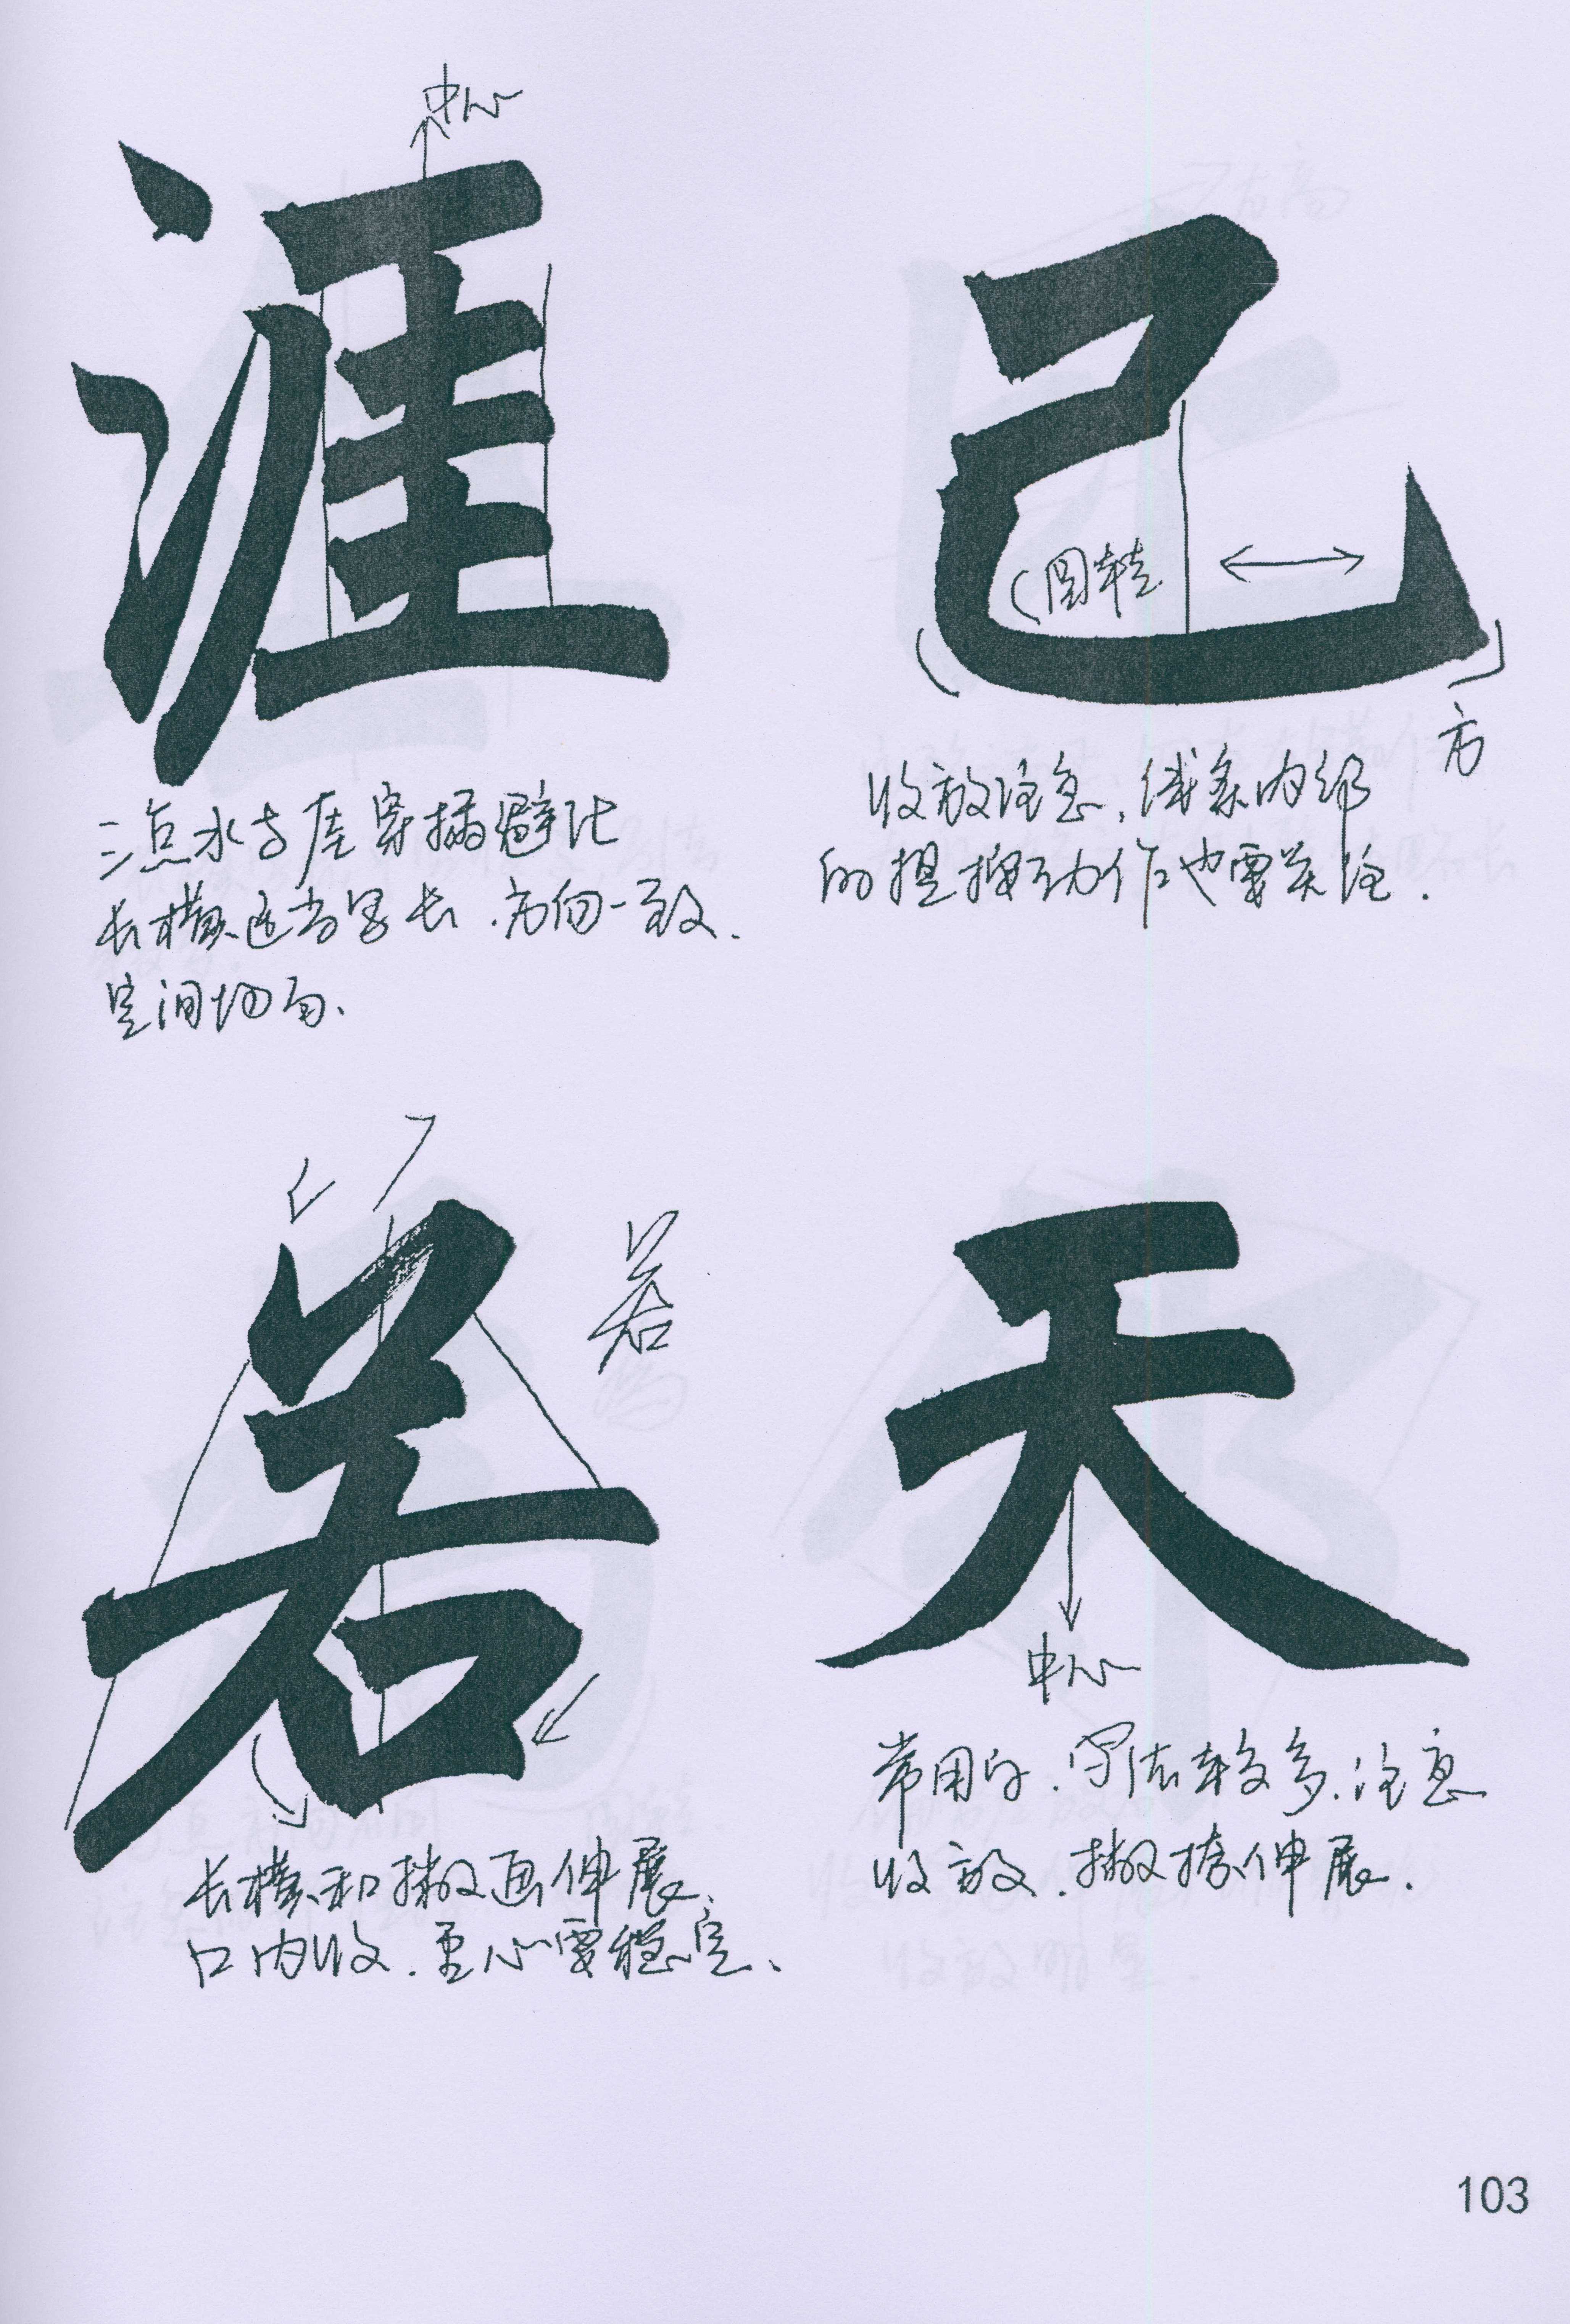 中心
涯
三点水与厓穿插避让
长横适当写长.方向一致.
空间均匀、
己
(圆转
方
收放注意,线条内部
的提按动作也要关注.
若
若
长横和撇画伸展、
口内收.重心要稳定、
天
中心
常用字.写法较多.注意
收放.撇捺伸展.
103